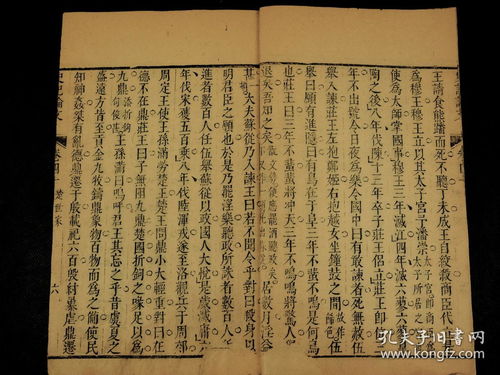 王請食熊蹯而死不聽丁未成王自絞殺商臣代立
為穆王穆王立以其太子宮予潘崇太子宮即商臣為太子所居之
使為太師掌國事穆王三年滅江四年滅六蓼六蓼
陶之後八年伐陳十二年卒子莊王侶立莊王即位三
年不出號令日夜為樂令國中曰有敢諫者死無赦伍
舉入諫莊王左抱鄭姬右抱越女坐鐘鼓之間伍
舉曰願有進隱曰有鳥在于阜三年不蜚不鳴是何鳥
也莊王曰三年不蜚蜚將沖天三年不鳴鳴將驚人
退矣吾知之矣居數月淫益
甚大夫蘇從乃入諫王曰若不聞令乎對曰殺身以
明君臣之願也於是乃罷淫樂聽政所誅者數百人所
進者數百人任伍舉蘇從以政國人大說是歲滅庸六
年伐宋獲五百乘八年伐陸渾戎遂至洛觀兵于周郊
周定王使王孫滿勞楚王楚王問鼎小大輕重對曰在
德不在鼎莊王曰子無阻九鼎楚國折鉤之喙足以為
九鼎王孫滿曰嗚呼君王其忘之乎昔虞夏之
盛遠方皆至貢金九牧鑄鼎象物百物而為之備使民
知神姦桀有亂德鼎遷于殷載祀六百殷紂暴虐鼎遷
史記論文
卷四十
楚世家
六
孔夫子旧书网
www.kongfz.com